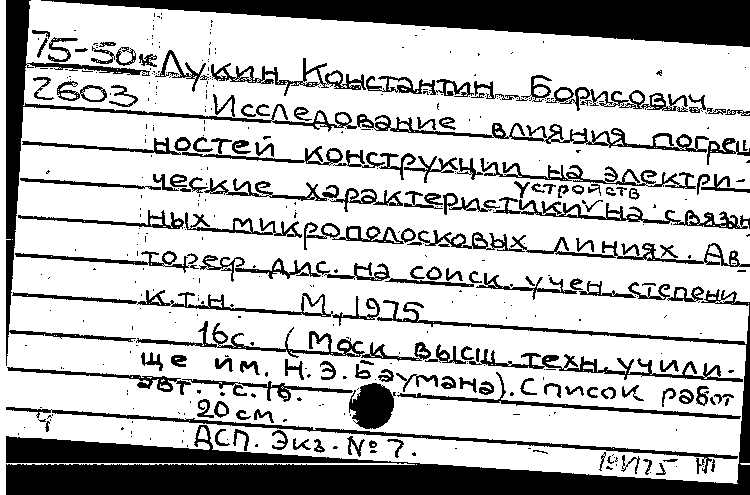 75-50к Лукин, Константин Борисович
2603 Исследование влияния погреш
ностей конструкции на электри-
ческие характеристики устройств на связан
ных микрополосковых линиях. Ав
тореф. дис. на соиск. учен. степени
к.т.н. М., 1975
16с. (Моск. высш. техн. учили-
ще им. Н.Э. Баумана). Список работ
авт.: с.16.
20 см.
ДСП. Экз. №7.